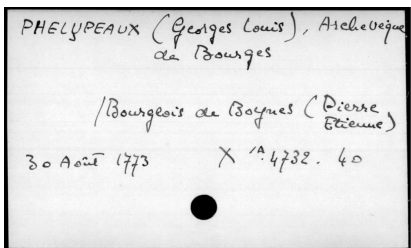 PHELYPEAUX (Georges Louis), Archevêque
de Bourges
/Bourgeois de Boynes (Pierre
Etienne)
30 Août 1773 X 1A. 4732. 40